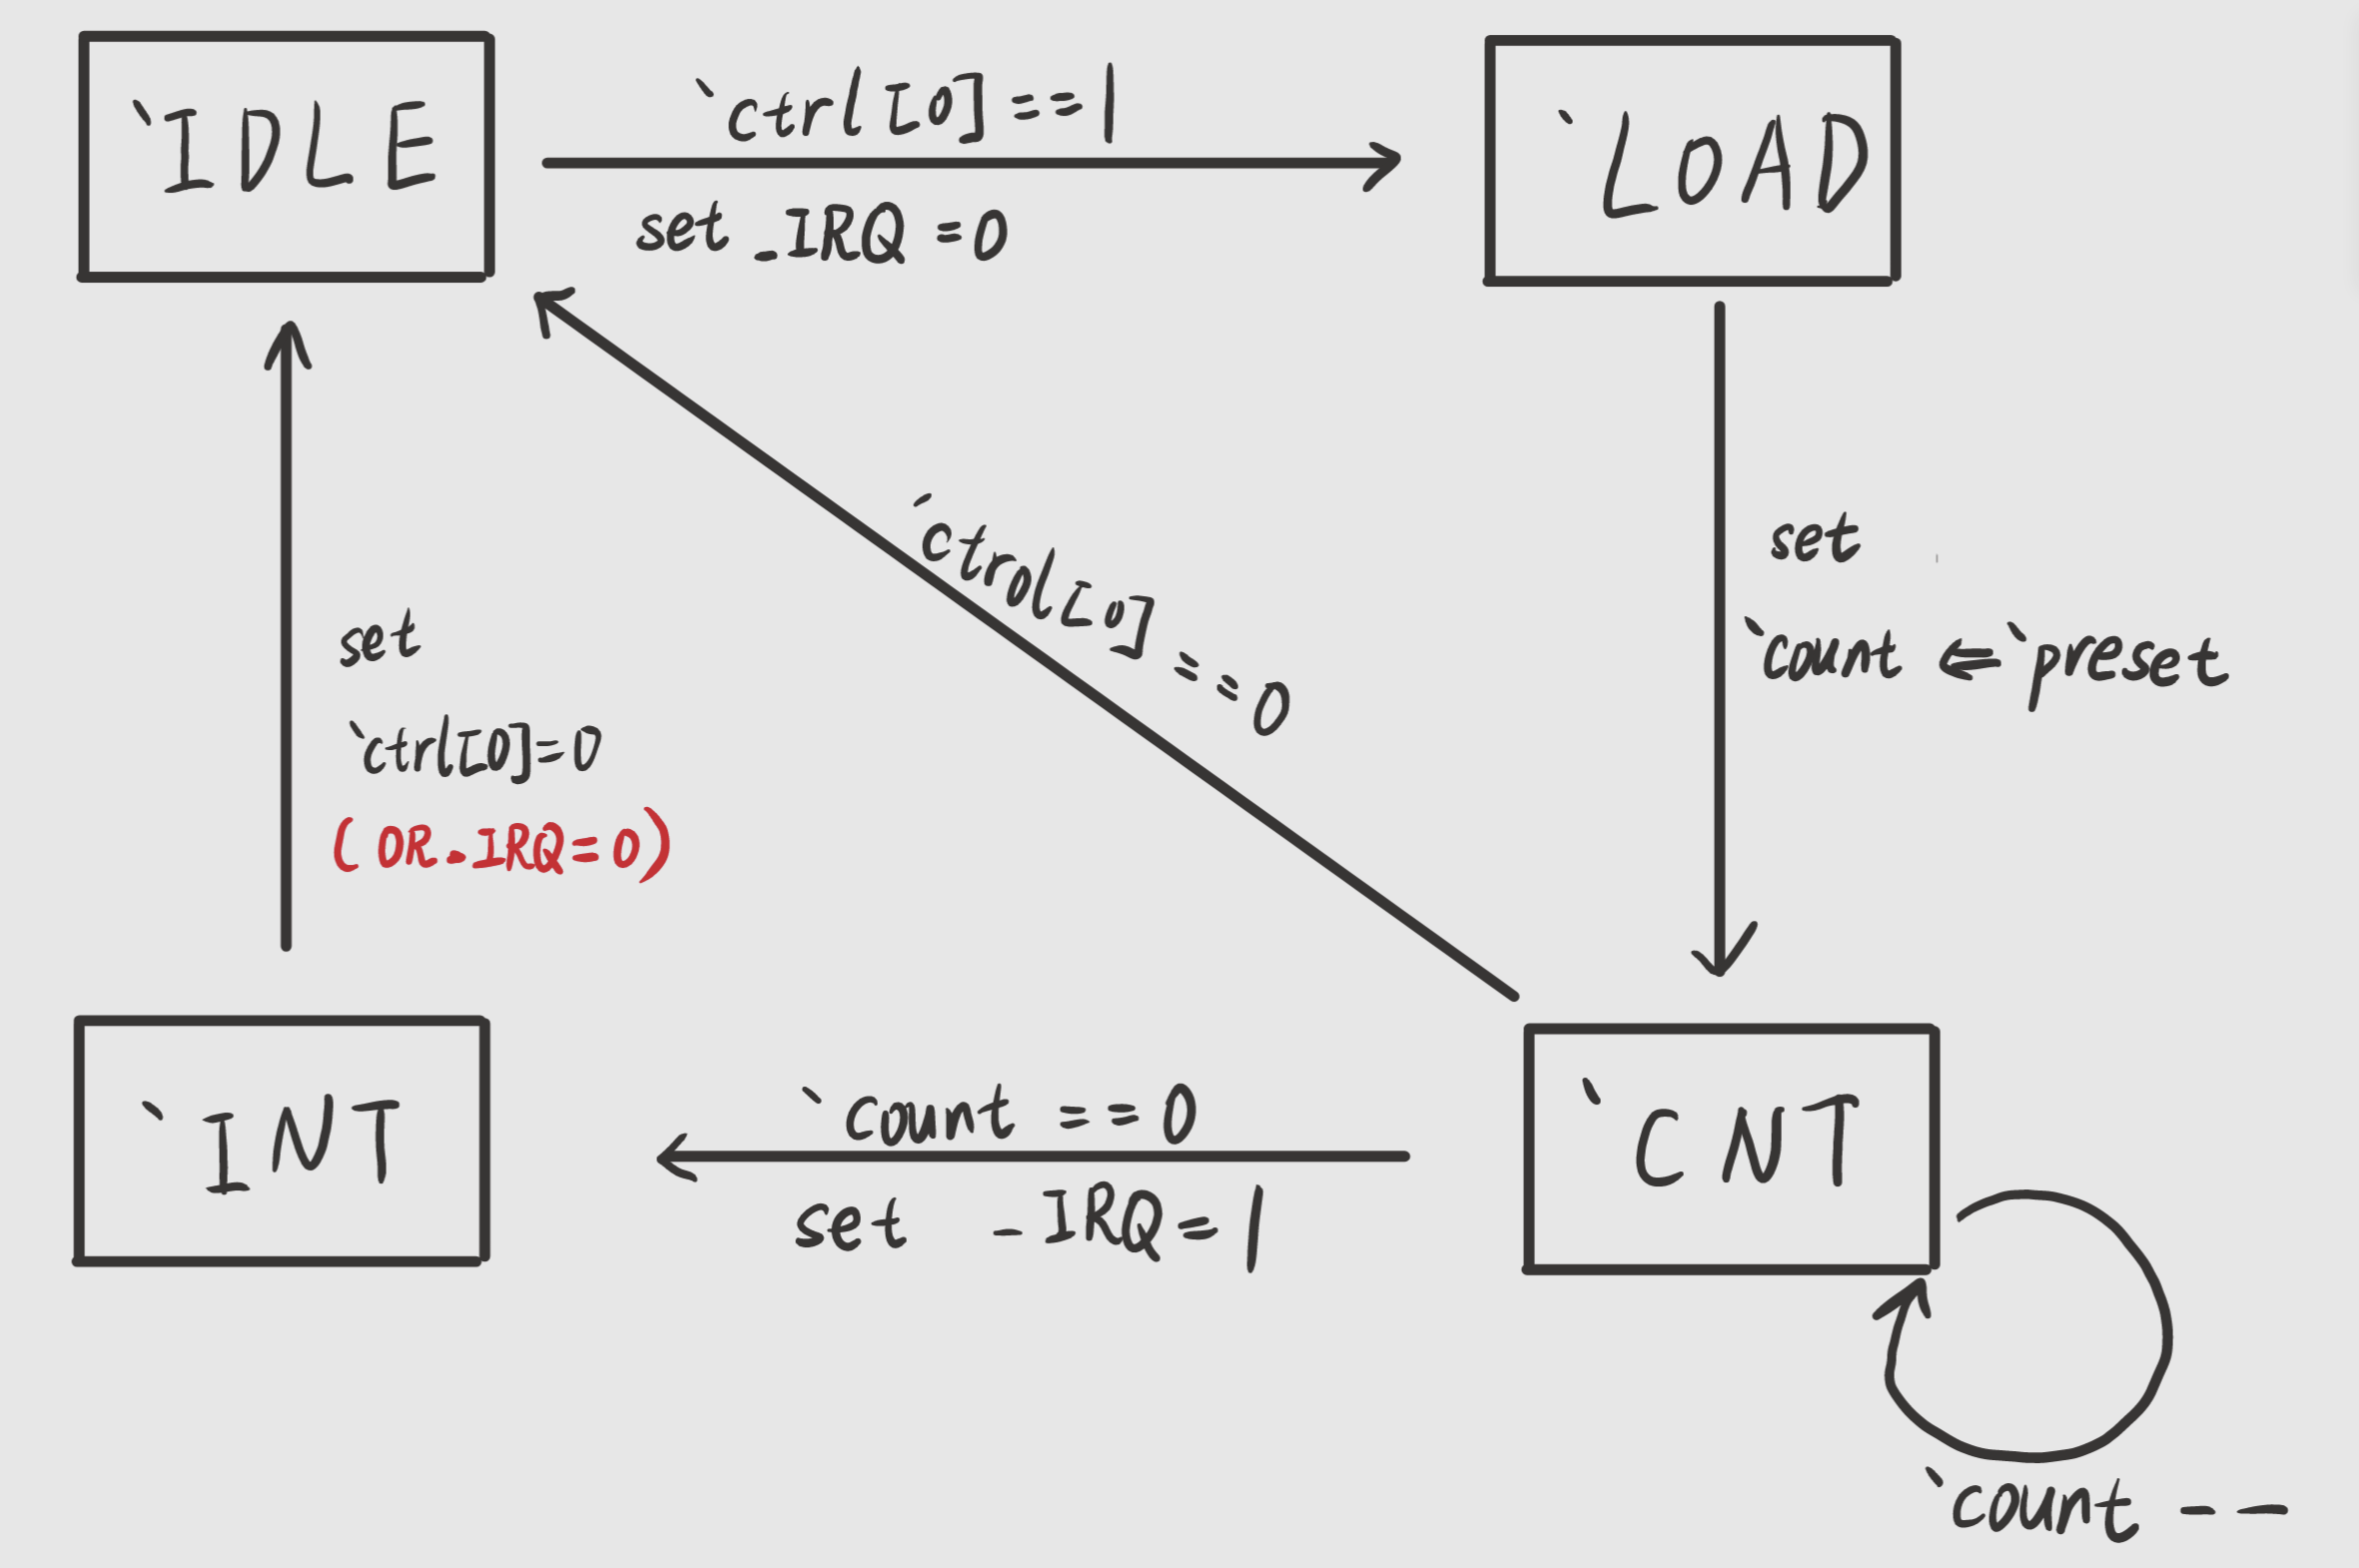 `IDLE
`ctrl[0]==1
set _IRQ=0
`LOAD
`ctrol[0]==0
set
`count <= `preset
set
`ctrl[0]=0
(OR _IRQ=0)
`INT
`count ==0
set _IRQ=1
`CNT
`count --